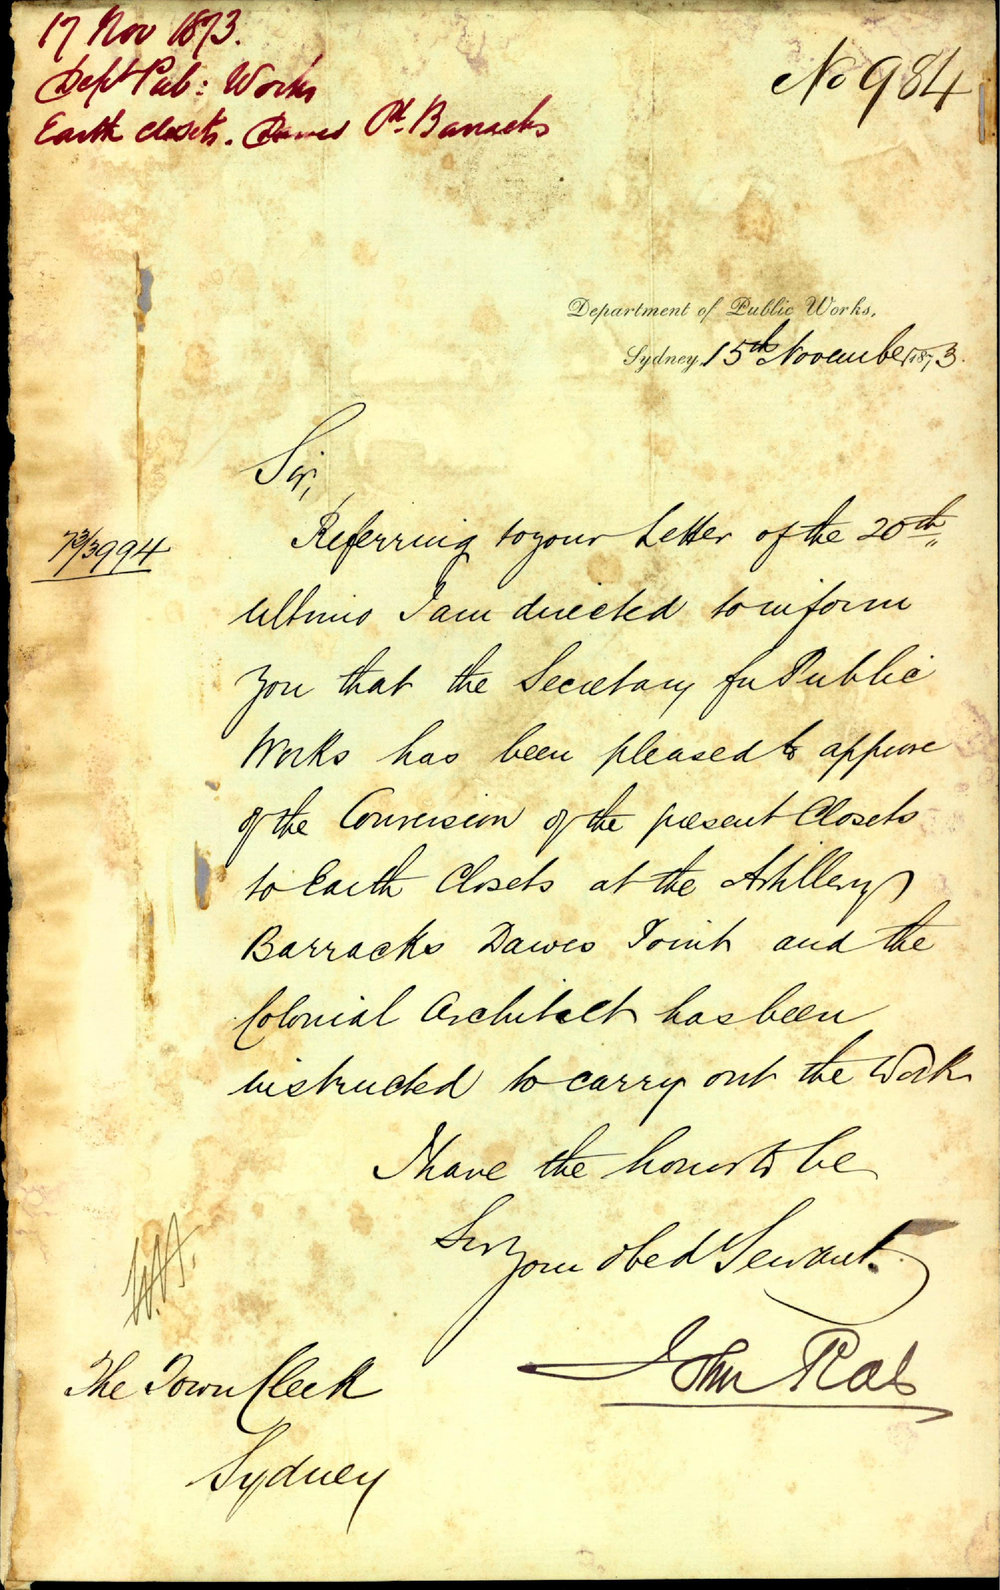 17 Nov 1873.
Dept Pub: Works
Earth closets. Dawes Pt. Barracks
No 984
Department of Public Works,
Sydney, 15th November 1873.
Sir,
73/3994
Referring to your Letter of the 20th
ultimo I am directed to inform
you that the Secretary for Public
Works has been pleased to approve
of the Conversion of the present Closets
to Earth Closets at the Artillery
Barracks Dawes Point and the
Colonial Architect has been
instructed to carry out the Work
I have the honor to be
Sir
Your obed Servant.
John Rae
The Town Clerk
Sydney